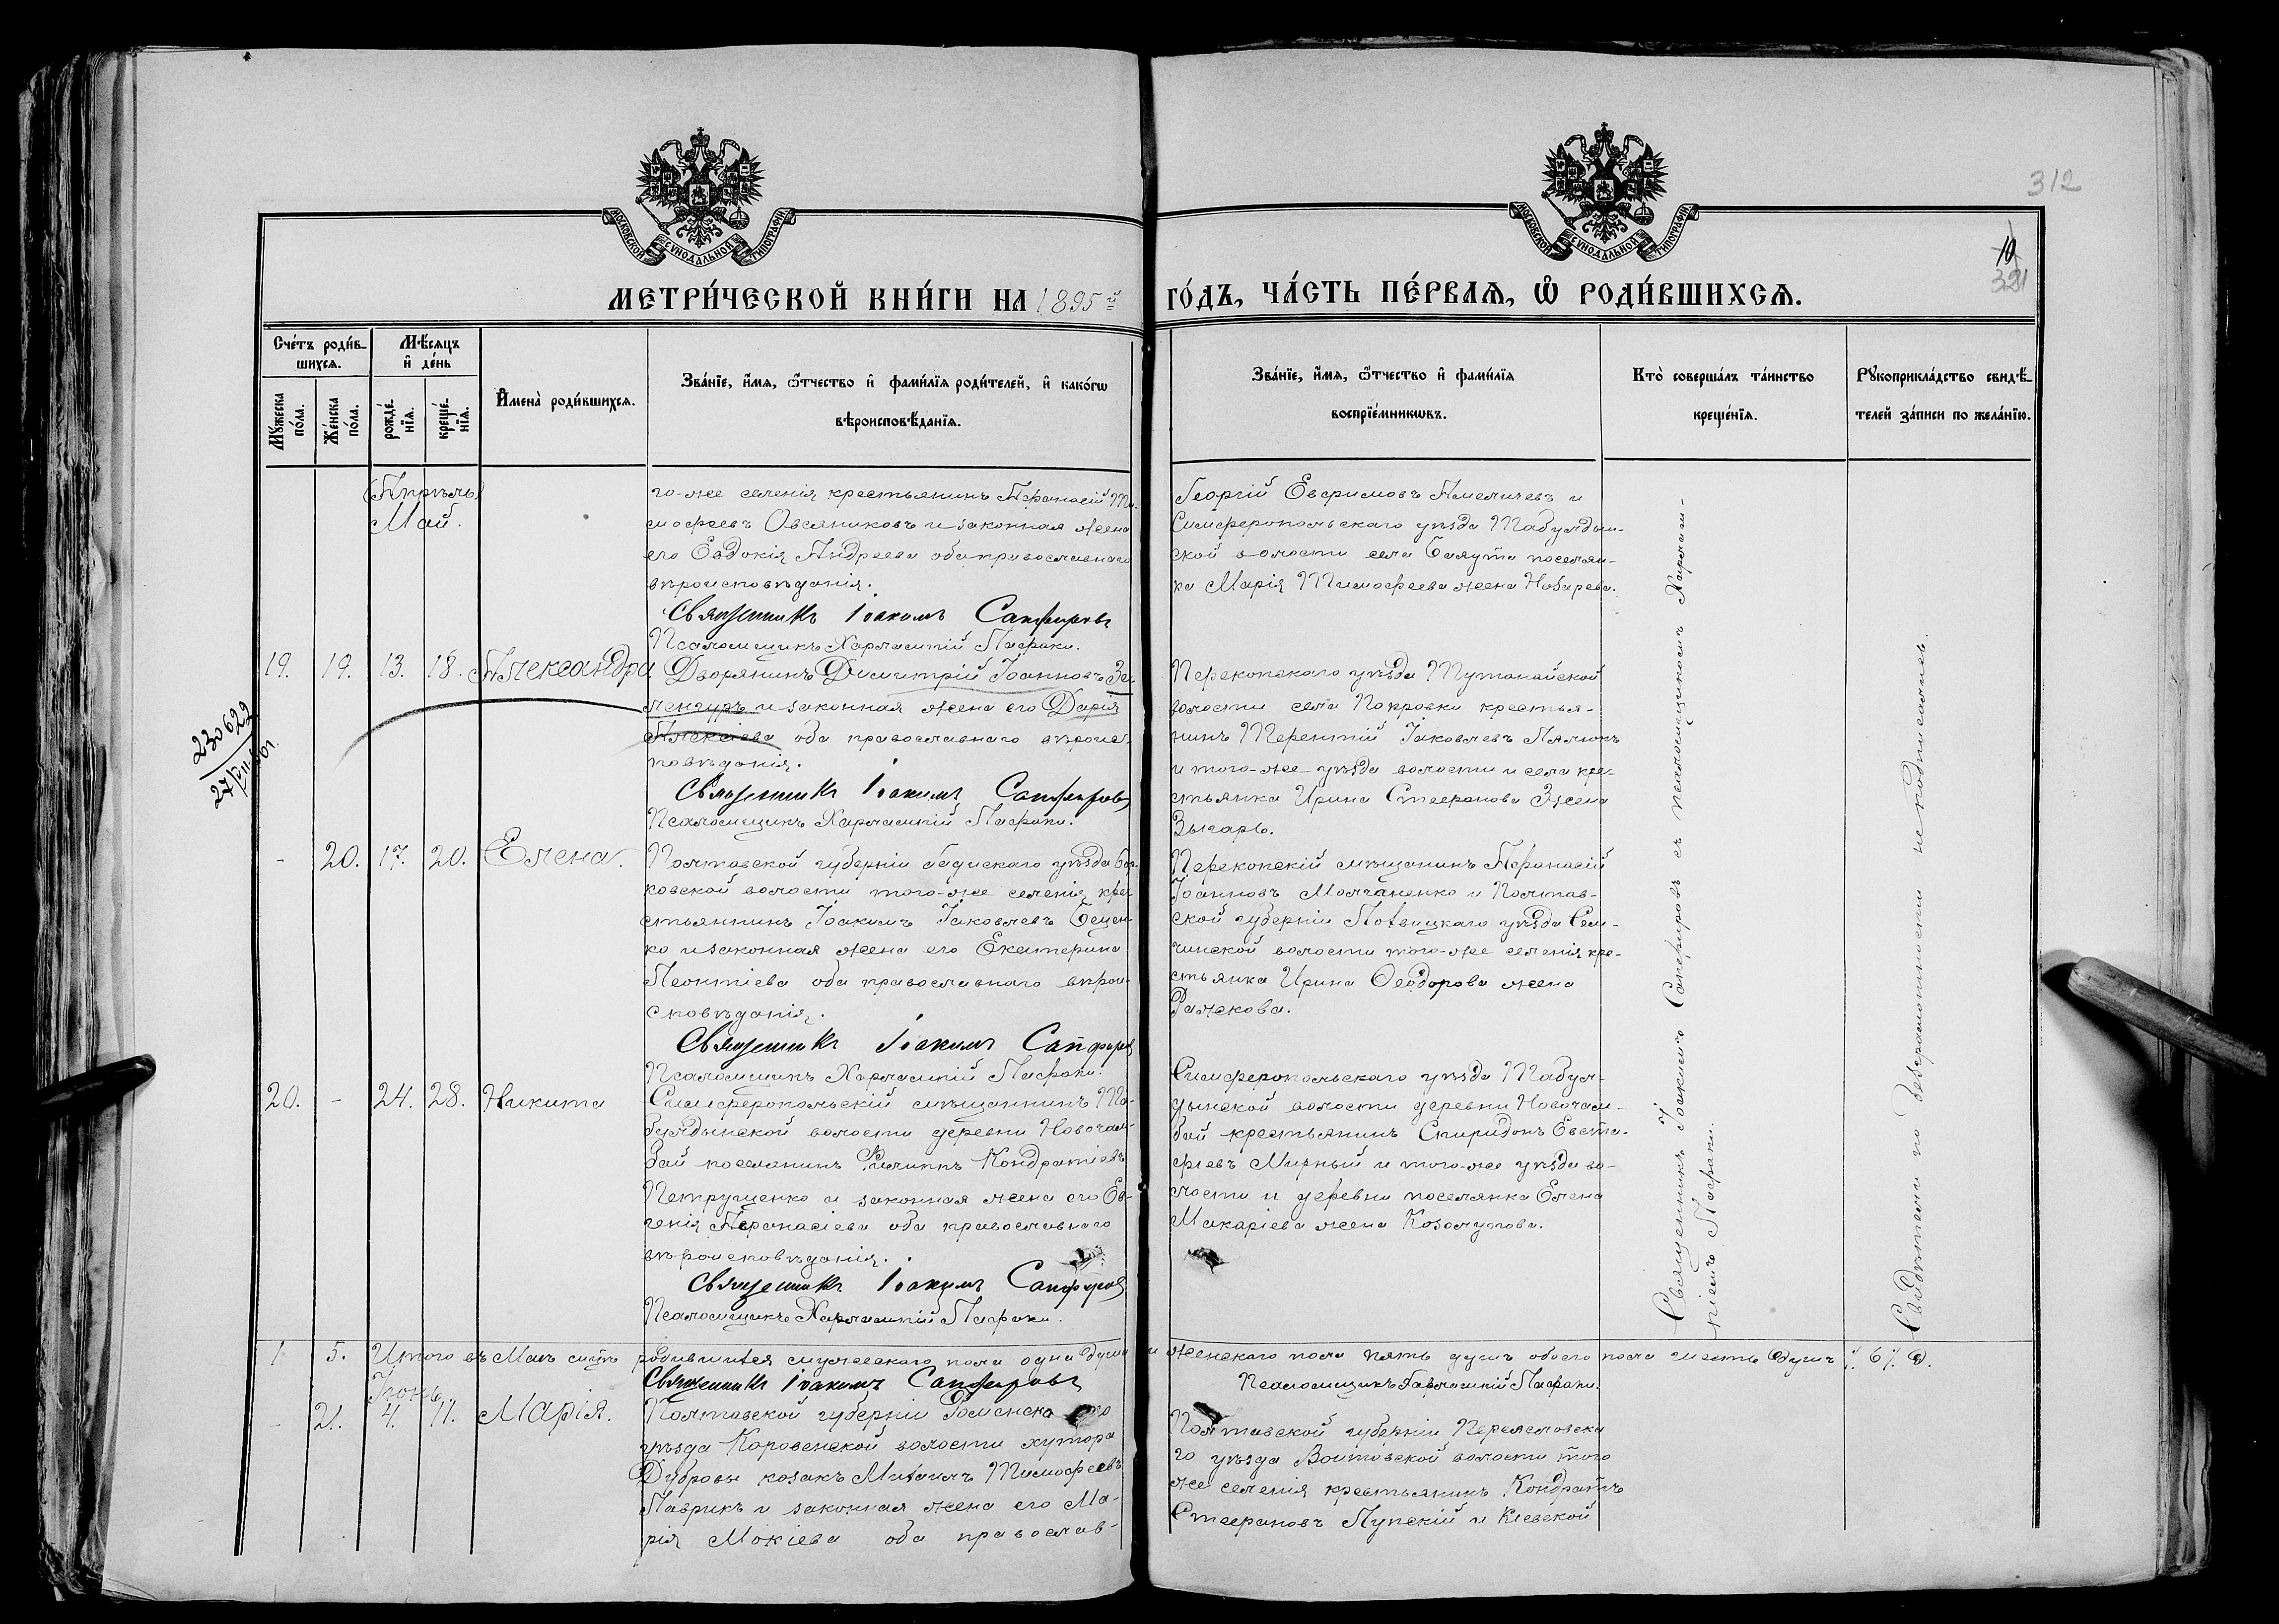 312
10
321
МОСКОВСКОЙ СѴНОДАЛЬНОЙ ТИПОГРАФІИ
МОСКОВСКОЙ СѴНОДАЛЬНОЙ ТИПОГРАФІИ
МЕТРИ́ЧЕСКОЙ КНИ́ГИ НА 1895й
ГО́ДЪ, ЧА́СТЬ ПЕ́РВАѦ, Ѡ РОДИ́ВШИХСѦ.
Сче́тъ роди́в-
шихсѧ.
Мꙋ́жеска по́ла.
Же́нска по́ла.
Мѣ́сѧцъ
и҆ де́нь
рожде́-
нїѧ.
креще́-
нїѧ.
И҆мена̀ роди́вшихсѧ.
Зва́нїе, и҆́мѧ, ѻ҆́тчество и҆ фами́лїѧ роди́телей, и҆ како́гѡ
вѣроисповѣ́данїѧ.
Зва́нїе, и҆́мѧ, ѻ҆́тчество и҆ фами́лїѧ
воспрїе́мникѡвъ.
Кто̀ соверша́лъ та́инство
креще́нїѧ.
Рꙋкоприкла́дство свидѣ́-
телей за́писи по жела́нїю.
(Апрѣль)
Май.
го-же селенія крестьянинъ Афанасій Ти-
мофеевъ Овсяниковъ и законная жена
его Евдокія Андреева оба православнаго
вѣроисповѣданія.
Священникъ Іоакимъ Сапфировъ
Псаломщикъ Харлампій Пафоки.
Георгій Ефримовъ Амеличевъ и
Симферопольскаго уѣзда Табулдын-
ской волости села Баяута поселян-
ка Марія Тимофеева жена Нобарева.
19. 19. 13. 18. Александра
Дворянинъ Димитрій Іоанновъ Зе-
ленгуръ и законная жена его Дарія
Алексіева оба православнаго вѣроис-
повѣданія.
Священникъ Іоакимъ Сапфировъ
Псаломщикъ Харлампій Пафоки.
Перекопскаго уѣзда Тутанайской
волости села Покровки крестья-
нинъ Терентій Іаковлевъ Лялюкъ
и того-же уѣзда волости и села кре-
стьянка Ирина Стефанова жена
Зыгарь.
230622
- 20. 17. 20. Елена.
Полтавской губерніи Гадяскаго уѣзда Бор-
ковской волости того-же селенія кре-
стьянинъ Іоакимъ Іаковлевъ Бецен-
ко и законная жена его Екатерина
Леонтіева оба православнаго вѣрои-
сповѣданія.
Священникъ Іоакимъ Сапфиров
Псаломщикъ Харлампій Пафоки.
Перекопскій мѣщанинъ Афанасій
Іоанновъ Молчаненко и Полтав-
ской губерніи Лохвицкаго уѣзда Сен-
чинской волости того-же селенія кре-
стьянка Ирина Ѳеодорова жена
Рамскова.
20. - 24. 28. Никита
Симферопольскій мѣщаннинъ Та-
булдынской волости деревни Новочам-
бай поселянинъ Филиппъ Кондратіевъ
Петрущенко и законная жена его Ев-
генія Афанасіева оба православнаго
вѣроисповѣданія.
Священникъ Іоакимъ Сапфиров
Псаломщикъ Харлампій Пафоки.
Симферопольскаго уѣзда Табул-
дынской волости деревни Новочам-
бай крестьянинъ Спиридонъ Евста-
фіевъ Мирный и того-же уѣзда во-
лости и деревни поселянка Елена
Макаріева жена Козолупова.
Священникъ Іоакимъ Сапфировъ съ псаломщикомъ Харлам-
піемъ Пафоки.
Свидѣтели по безграмотности не подписались.
1 5. Итого въ Маѣ мѣсяцѣ родившихся мужескаго пола одна душа и женскаго пола пять душъ обоего пола шесть душъ 6
Священникъ Іоакимъ Сапфировъ
Псаломщикъ Харлампій Пафоки.
Іюнь
- 21. 4. 11. Марія.
Полтавской губерніи Роменска го
уѣзда Коровенской волости хутора
Дубровы козакъ Михаилъ Тимофеевъ
Лаврикъ и законная жена его Ма-
рія Мокіева оба православ-
Полтавской губерніи Переяславска
го уѣзда Войтовской волости того
же селенія крестьянинъ Кондратъ
Стефановъ Лупскій и Кіевской